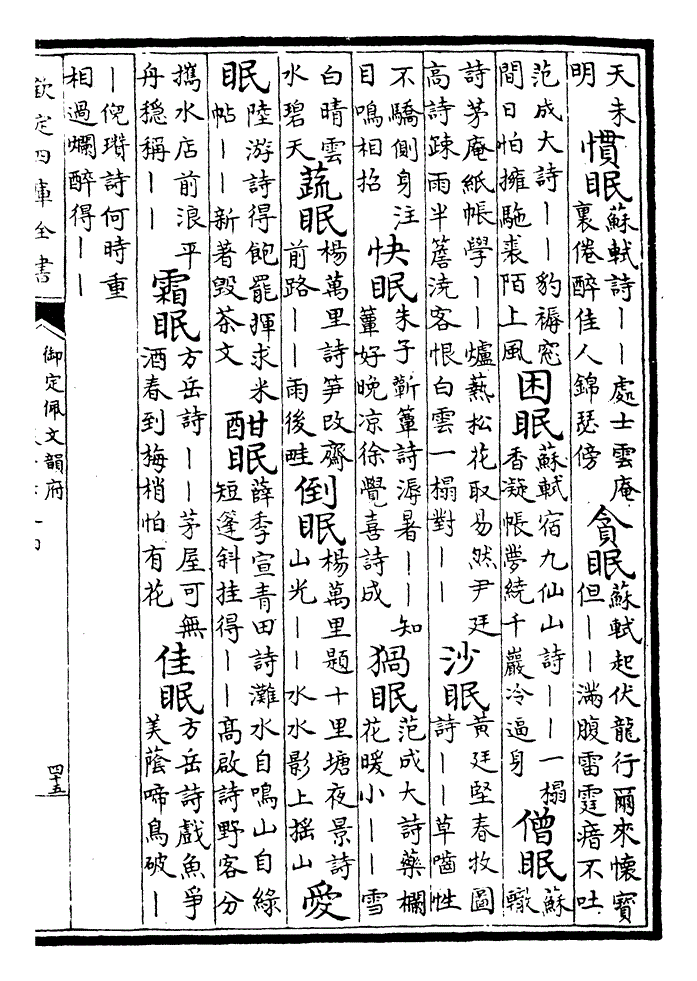 天未明慣眠蘇軾詩丨丨處士雲庵裏倦醉佳人錦瑟傍貪眠蘇軾起伏龍行爾來懷寶但丨丨滿腹雷霆瘖不吐
范成大詩丨丨豹褥窓間日怕擁駞裘陌上風困眠蘇軾宿九仙山詩丨丨一榻香凝帳夢繞千巖冷逼身僧眠蘇轍
詩茅庵紙帳學丨丨爐爇松花取易然尹廷高詩疎雨半簷澆客恨白雲一榻對丨丨沙眠黃廷堅春牧圖詩丨丨草嚙性
不驕側身注目鳴相招快眠朱子蘄簟詩溽暑丨丨知簟好晚凉徐覺喜詩成猧眠范成大詩藥欄花暖小丨丨雪
白晴雲水碧天蔬眠楊萬里詩笋改齋前路丨丨雨後畦倒眠楊萬里題十里塘夜景詩山光丨丨水水影上揺山愛
眠陸游詩得飽罷揮求米帖丨丨新著毀茶文酣眠薛季宣青田詩灘水自鳴山自綠短篷斜挂得丨丨高啟詩野客分
攜水店前浪平舟穏稱丨丨霜眠方岳詩丨丨茅屋可無酒春到梅梢怕有花佳眠方岳詩戲魚爭美蔭啼鳥破丨
丨倪瓚詩何時重相過爛醉得丨丨
欽定四庫全書
御定佩文韻府
四十五